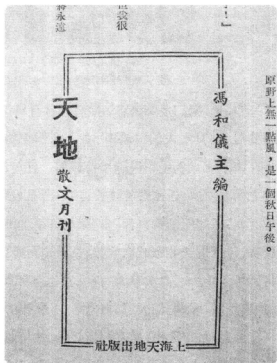 原野上無一點風，是一個秋日午後。
馮和儀主編
天地 散文月刊
上海天地出版社
！」